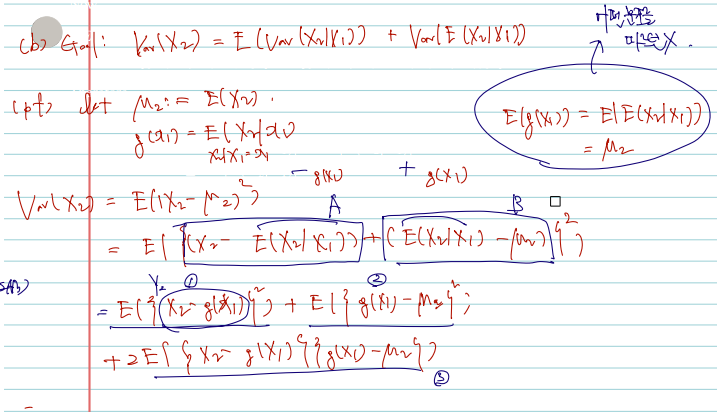 (b) Goal: Var(X₂) = E(Var(X₂|X₁)) + Var(E(X₂|X₁))
(pf) let μ₂ := E(X₂).
g(x₁) = E(X₂|x₁)
X₂|X₁=x₁
E(g(X₁)) = E(E(X₂|X₁))
= μ₂
X.
-g(X₁) + g(X₁)
Var(X₂) = E((X₂-μ₂)²)
A B □
= E({(X₂ - E(X₂|X₁)) + (E(X₂|X₁) - μ₂)}²)
① ②
= E({X₂-g(X₁)}²) + E({g(X₁)-μ₂}²)
+ 2E({X₂-g(X₁)}{g(X₁)-μ₂})
③
=